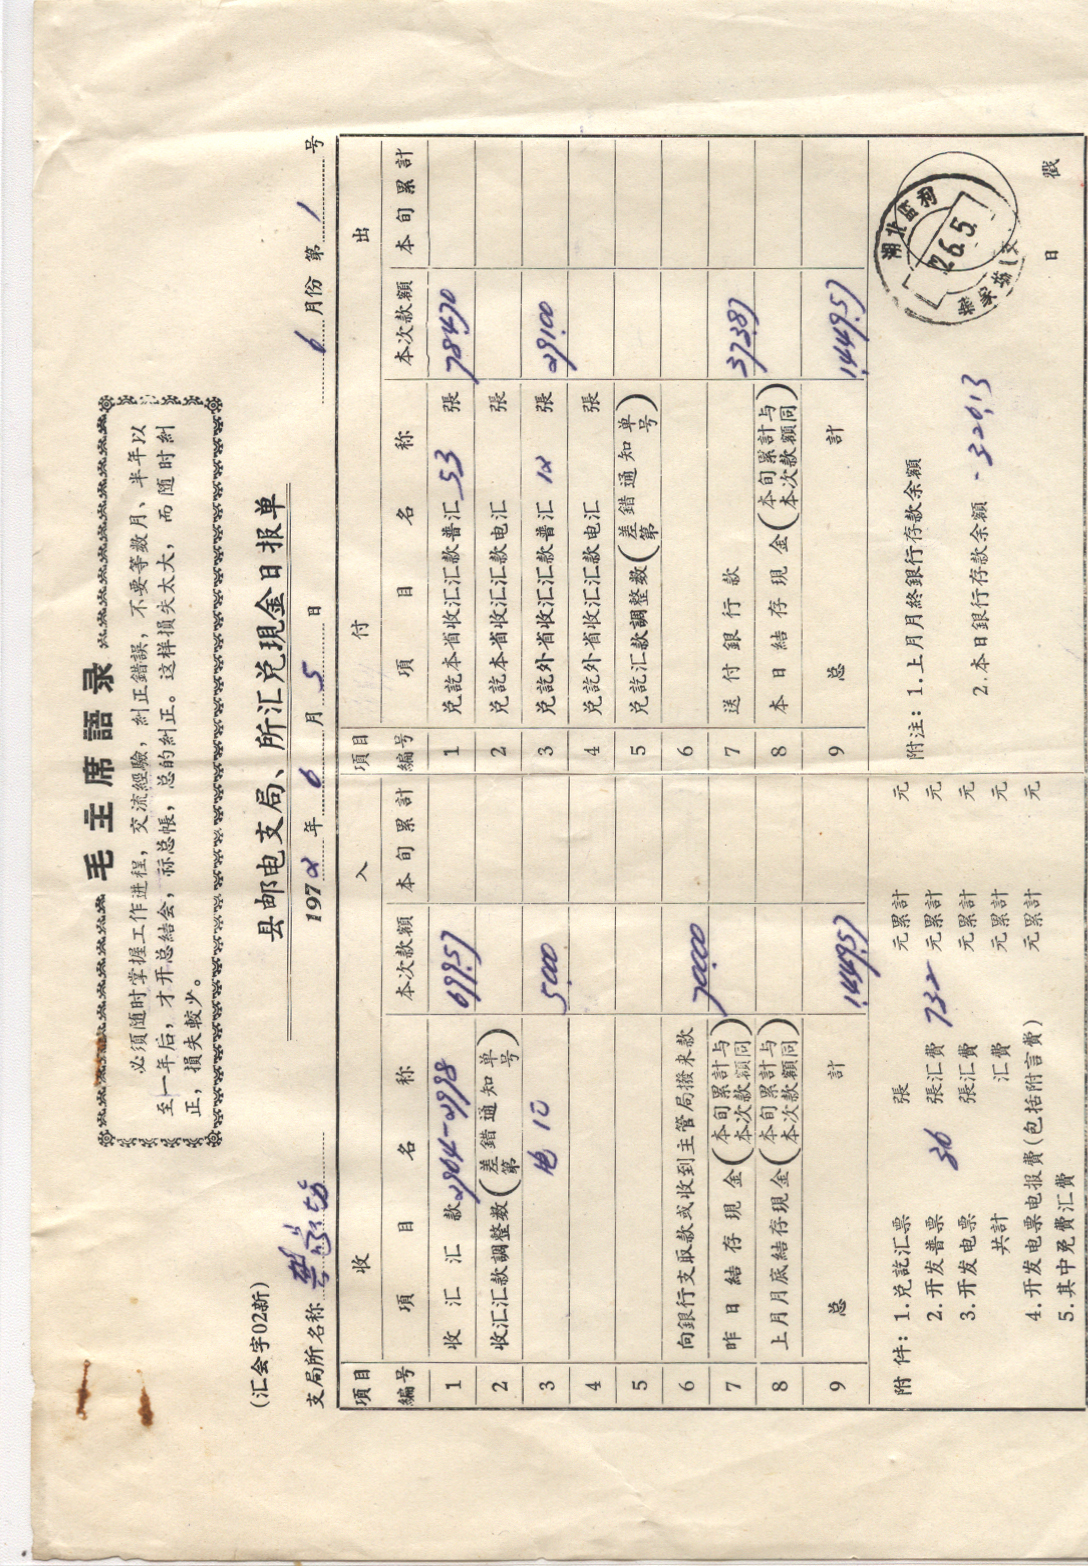 毛主席語录
必须随时掌握工作进程，交流經驗，糾正錯誤，不要等数月、半年以
至一年后，才开总結会，祘总帳，总的糾正。这样損失太大，而随时糾
正，損失較少。
(汇会字02新)
县邮电支局、所汇兑現金日报单
支局所名称
1972年6月5日
6月份第1号
收入
項目編号 項目名称 本次款額 本旬累計
1 收汇汇款 2964-2998 699.57
2 收汇汇款調整数(差錯通知单第 号)
3 电汇 50.00
4
5
6 向銀行支取款或收到主管局撥来款 700.00
7 昨日結存現金(本旬累計与本次款額同)
8 上月月底結存現金(本旬累計与本次款額同)
9 总計 1449.57
付出
項目編号 項目名称 本次款額 本旬累計
1 兑訖本省收汇汇款普汇 53 張 784.70
2 兑訖本省收汇汇款电汇 張
3 兑訖外省收汇汇款普汇 12 張 291.00
4 兑訖外省收汇汇款电汇 張
5 兑訖汇款調整数(差錯通知单第 号)
6
7 送付銀行款 373.87
8 本日結存現金(本旬累計与本次款額同)
9 总計 1449.57
附件：1.兑訖汇票 張 元累計 元
2.开发普票 36 張汇費 7.32 元累計 元
3.开发电票 張汇費 元累計 元
共計 汇費 元累計 元
4.开发电票电报費(包括附言費) 元累計 元
5.其中免費汇費
附注：1.上月月終銀行存款余額
2.本日銀行存款余額 -320.13
日戳
湖北
6.5.